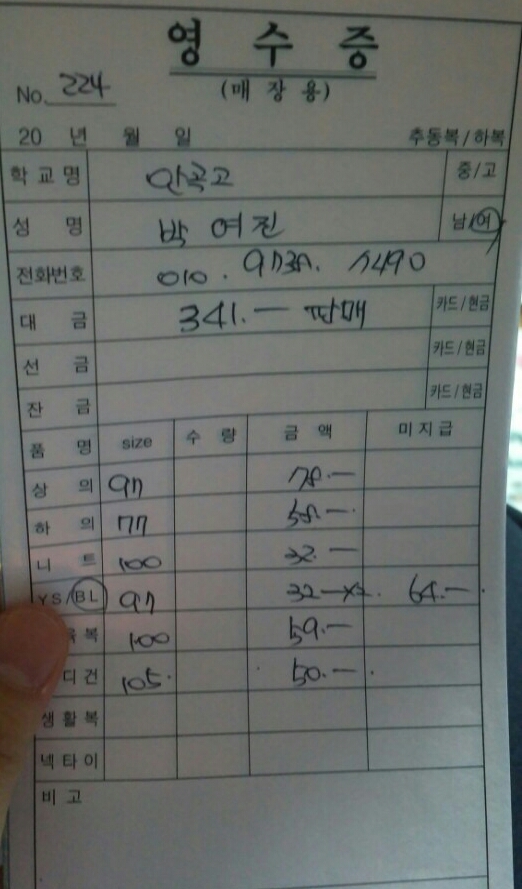 영 수 증
(매 장 용)
No. 224
20 년 월 일 추동복/하복
학교명 안곡고 중/고
성 명 박 여진 남/여
전화번호 010.
대 금 341.— 판매 카드/현금
선 금 카드/현금
잔 금 카드/현금
품 명 size 수 량 금 액 미지급
상 의 97 78.—
하 의 77 58.—
니 트 100 32.—
YS/BL 97 32—x2. 64.—
육복 100 59.—
디건 105. 50.—
생활복
넥타이
비 고